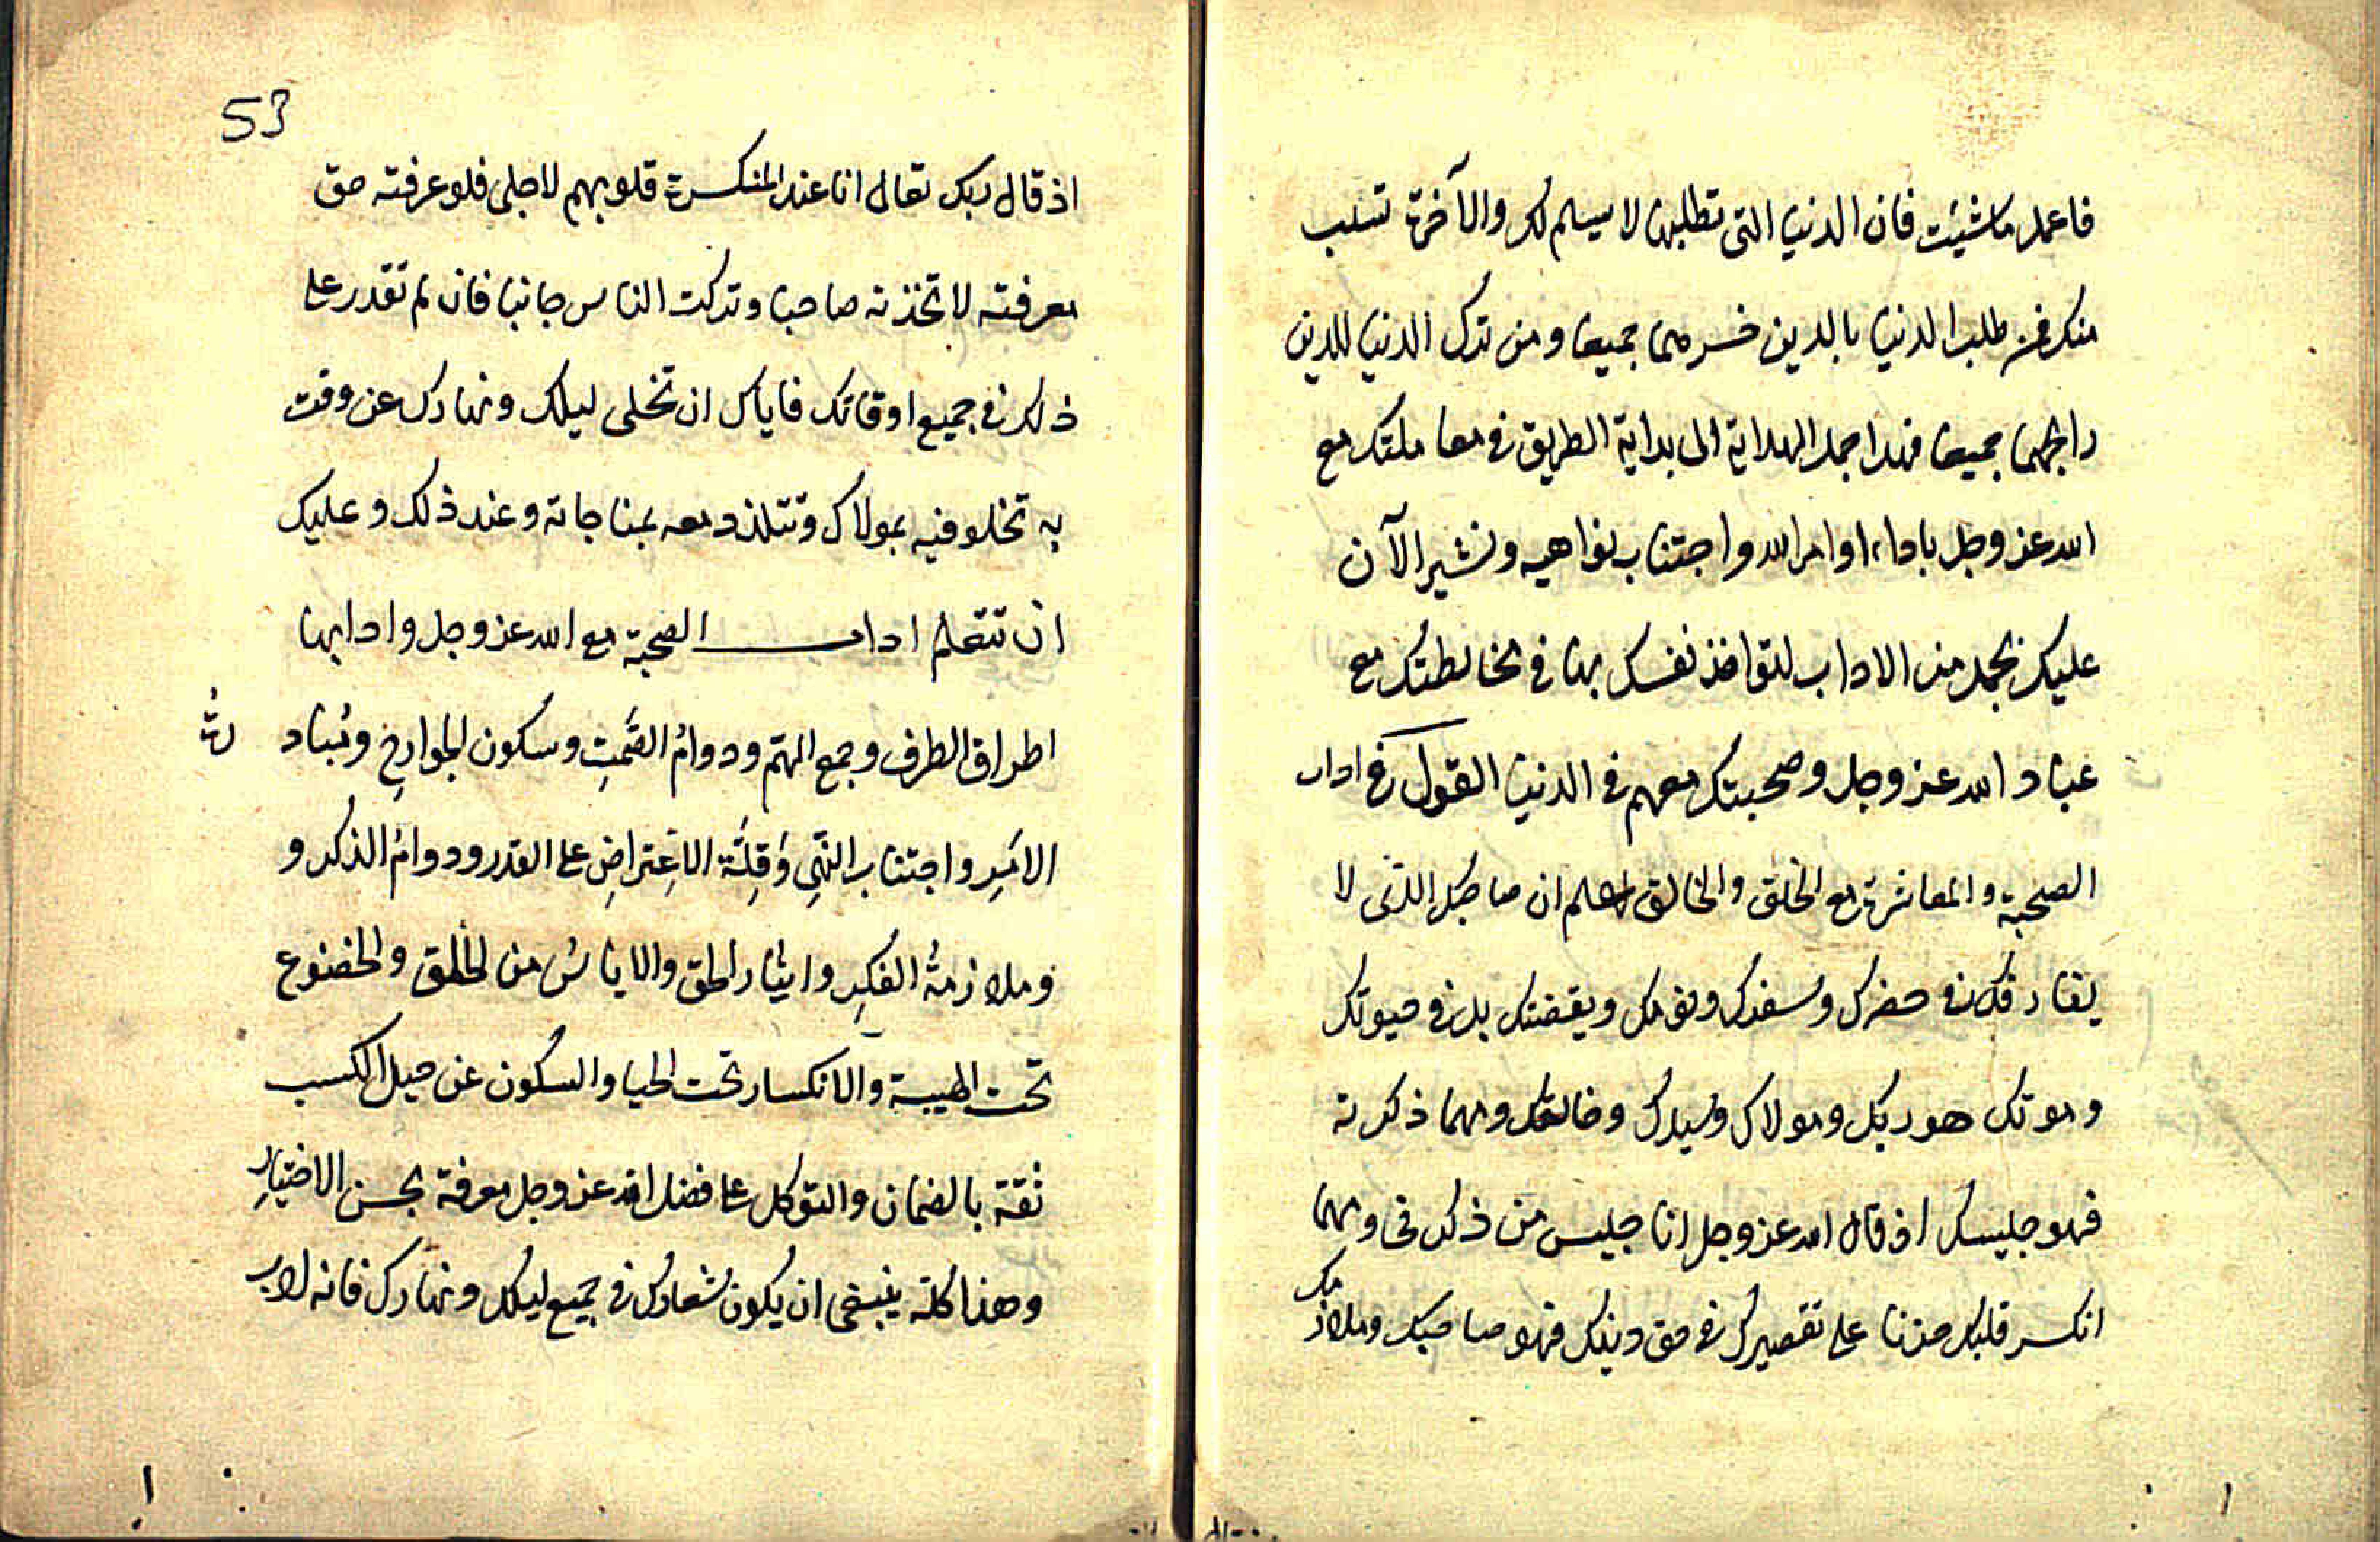 فاعمل ما شئت فان الدنيا التى تطلبها لا يسلم لك والآخرة تسلب
منك فمن طلب الدنيا بالدين خسرهما جميعا ومن ترك الدنيا للدين
رابحهما جميعا فهذا جمل الهداية الى بداية الطريق فى معاملتك مع
الله عز وجل باداء اوامر الله واجتناب نواهيه ونشير الآن
عليك بجمل من الاداب لتواخذ نفسك بها فى مخالطتك مع
عباد الله عز وجل وصحبتك معهم فى الدنيا القول فى اداب
الصحبة والمعاشرة مع الخلق والخالق اعلم ان صاحبك الذى لا
يفارقك فى حضرك وسفرك ونومك ويقضتك بل فى حيوتك
وموتك هو ربك ومولاك وسيدك وخالقك ومهما ذكرته
فهو جليسك اذ قال الله عز وجل انا جليس من ذكرنى ومهما
انكسر قلبك حزنا على تقصيرك فى حق دينك فهو صاحبك وملازمك
53
اذ قال ربك تعالى انا عند المنكسرة قلوبهم لاجلى فلو عرفته حق
معرفته لاتخذته صاحبا وتركت الناس جانبا فان لم تقدر على
ذلك فى جميع اوقاتك فاياك ان تخلى ليلك ونهارك عن وقت
به تخلو فيه بمولاك وتتلذذ معه بمناجاته وعند ذلك وعليك
ان تتعلم اداب الصحبة مع الله عز وجل وادابها
اطراق الطرف وجمع الهمّ ودوامُ الصَّمتِ وسكون الجوارحِ ومُباد
رةُ
الامَرِ واجتناب النَّهىِ وَقِلَّة الاعِتراضِ على القدر ودوامُ الذكر و
وملازمةُ الفكِرِ وايثار الحق والاياسُ من الخلق والخضوع
تحت الهيبة والانكسار تحت الحيا والسكون عن حيل الكسب
ثقة بالضمان والتوكل على فضل الله عز وجل معرفة بحسن الاختيارِ
وهذا كلّه ينبغى ان يكون شعارك فى جميع ليلك ونهارك فانه لاب